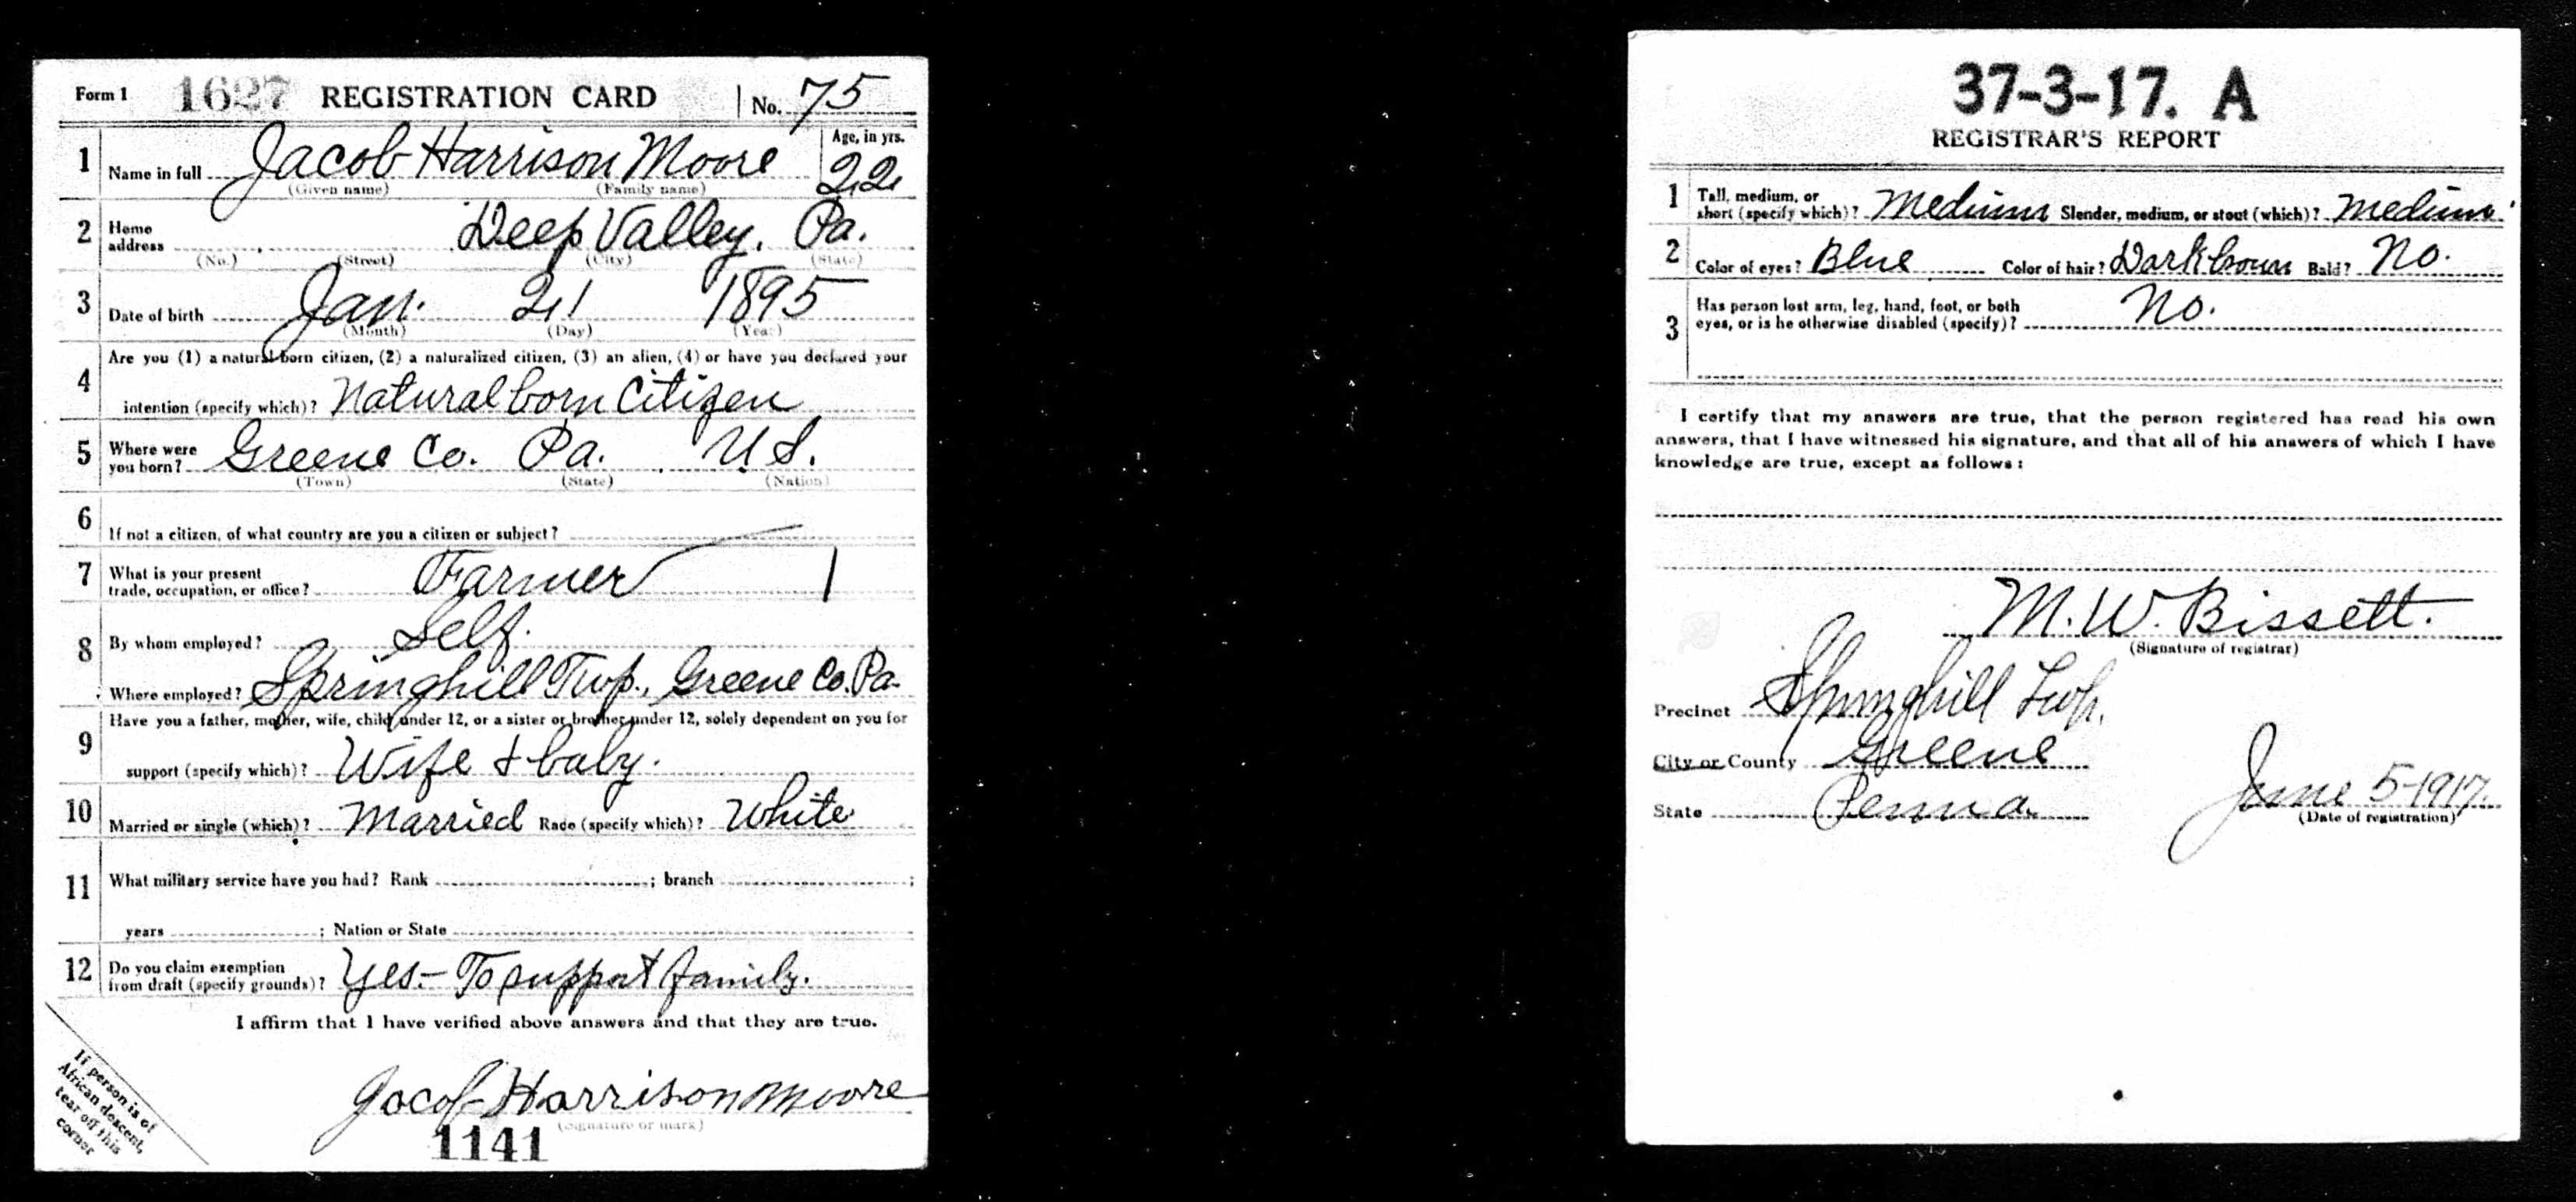 Form 1 1627 REGISTRATION CARD No. 75
1 Name in full Jacob Harrison Moore Age, in yrs. 22
(Given name) (Family name)
2 Home address Deep Valley, Pa.
(No.) (Street) (City) (State)
3 Date of birth Jan. 21 1895
(Month) (Day) (Year)
Are you (1) a natural born citizen, (2) a naturalized citizen, (3) an alien, (4) or have you declared your
4 intention (specify which)? Natural born Citizen
5 Where were you born? Greene Co. Pa. U.S.
(Town) (State) (Nation)
6 If not a citizen, of what country are you a citizen or subject?
7 What is your present trade, occupation, or office? Farmer 1
8 By whom employed? Self.
Where employed? Springhill Twp., Greene Co. Pa.
Have you a father, mother, wife, child under 12, or a sister or brother under 12, solely dependent on you for
9 support (specify which)? Wife & baby.
10 Married or single (which)? Married Race (specify which)? White
11 What military service have you had? Rank ; branch ;
years ; Nation or State
12 Do you claim exemption from draft (specify grounds)? Yes.- To support family.
I affirm that I have verified above answers and that they are true.
Jacob Harrison Moore
(Signature or mark)
1141
If person is of
African descent,
tear off this
corner
37-3-17. A
REGISTRAR'S REPORT
1 Tall, medium, or short (specify which)? Medium Slender, medium, or stout (which)? Medium.
2 Color of eyes? Blue Color of hair? Dark brown Bald? No.
3 Has person lost arm, leg, hand, foot, or both eyes, or is he otherwise disabled (specify)? No.
I certify that my answers are true, that the person registered has read his own
answers, that I have witnessed his signature, and that all of his answers of which I have
knowledge are true, except as follows:
M. W. Bissett.
(Signature of registrar)
Precinct Springhill Twp.
City or County Greene
State Penna. June 5-1917.
(Date of registration)